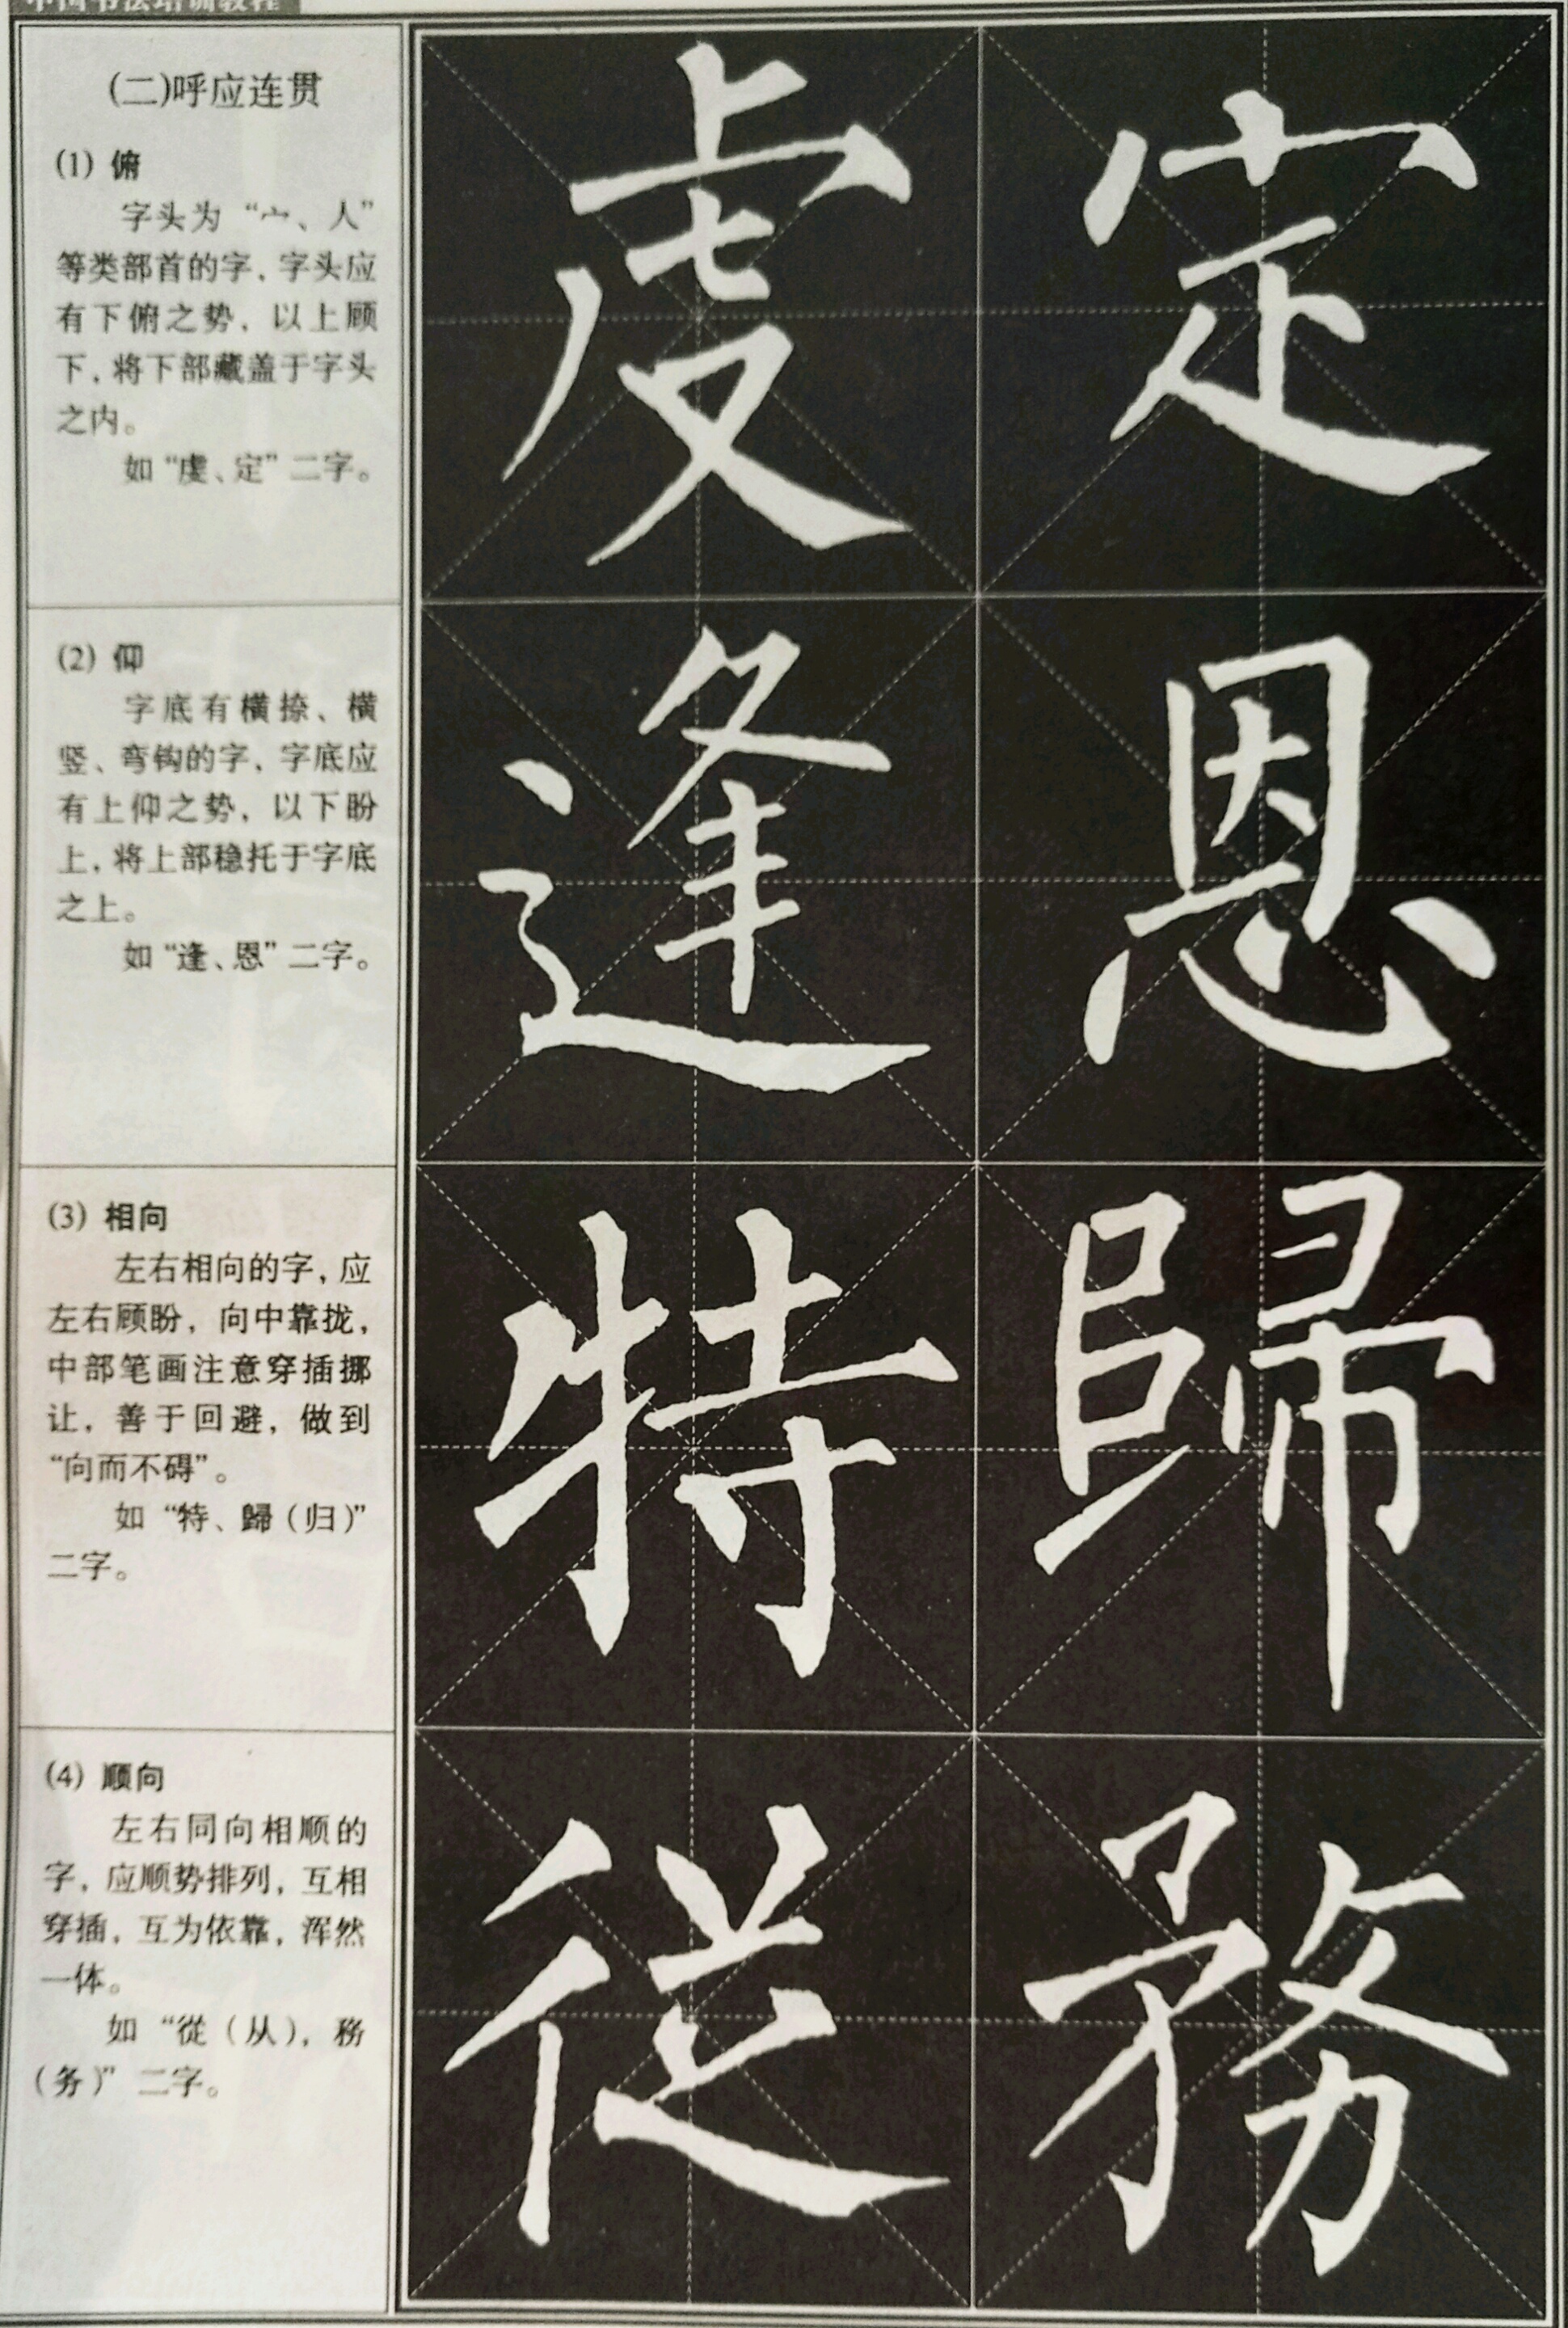 中国书法培训教程
(二)呼应连贯
(1) 俯
字头为“宀、人”
等类部首的字，字头应
有下俯之势，以上顾
下，将下部藏盖于字头
之内。
如“虔、定”二字。
虔 定
(2) 仰
字底有横捺、横
竖、弯钩的字，字底应
有上仰之势，以下盼
上，将上部稳托于字底
之上。
如“逢、恩”二字。
逢 恩
(3) 相向
左右相向的字，应
左右顾盼，向中靠拢，
中部笔画注意穿插挪
让，善于回避，做到
“向而不碍”。
如“特、歸（归）”
二字。
特 歸
(4) 顺向
左右同向相顺的
字，应顺势排列，互相
穿插，互为依靠，浑然
一体。
如“從（从），務
（务）”二字。
從 務